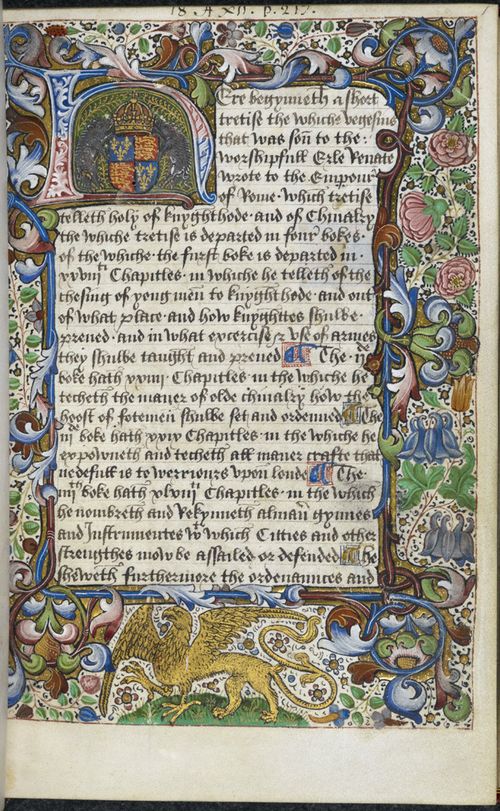 18. A XII. p. 217.
Ere begynneth a short
tretise the whiche vegesius
that was son to the ·
worshipfull Erle Renate
wrote to the Emperour
of Rome · which tretise
telleth holy of knyghthode · and of Chiualry
the whiche tretise is departed in four bokes ·
of the whiche · the furst boke is departed in ·
xxviij ti Chapitles · in whiche he telleth of the
chesing of yong men to knyghthode · and out
of what place · and how knyghttes shulbe ·
preued · and in what excercise & vse of armes
they shulbe taught and preued The · ij de
boke hath xxviij Chapitles · in the whiche he
techeth the maner of olde chiualry how the
hoost of fotemen shulbe set and ordeined The
iij de boke hath xxiv Chapitles · in the whiche he
expowneth and techeth all maner crafte that
nedefull is to werriours vpon londe The
iiij th boke hath xlviij ti Chapitles · in the which
he nombreth and rekynneth alman gynnes
and Instrumentes with which Citties and other
strengthes mow be assailed or defended The
sheweth furthermore the ordenaunces and